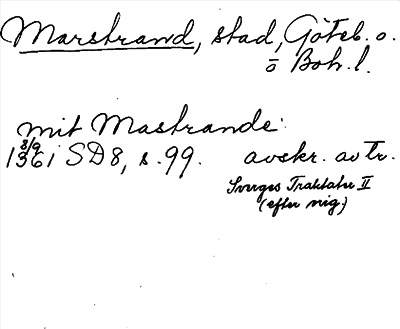 Marstrand, stad, Göteb. o.
o Boh. l.
mit Mastrande:
8/9
1361 i SD 8, s. 99. avskr. av tr.
Sverges Traktater II
(efter orig.)